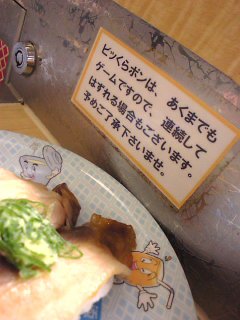 ビッくらポンは、あくまでも
ゲームですので 連続して
はずれる場合もございます。
予めご了承下さいませ。